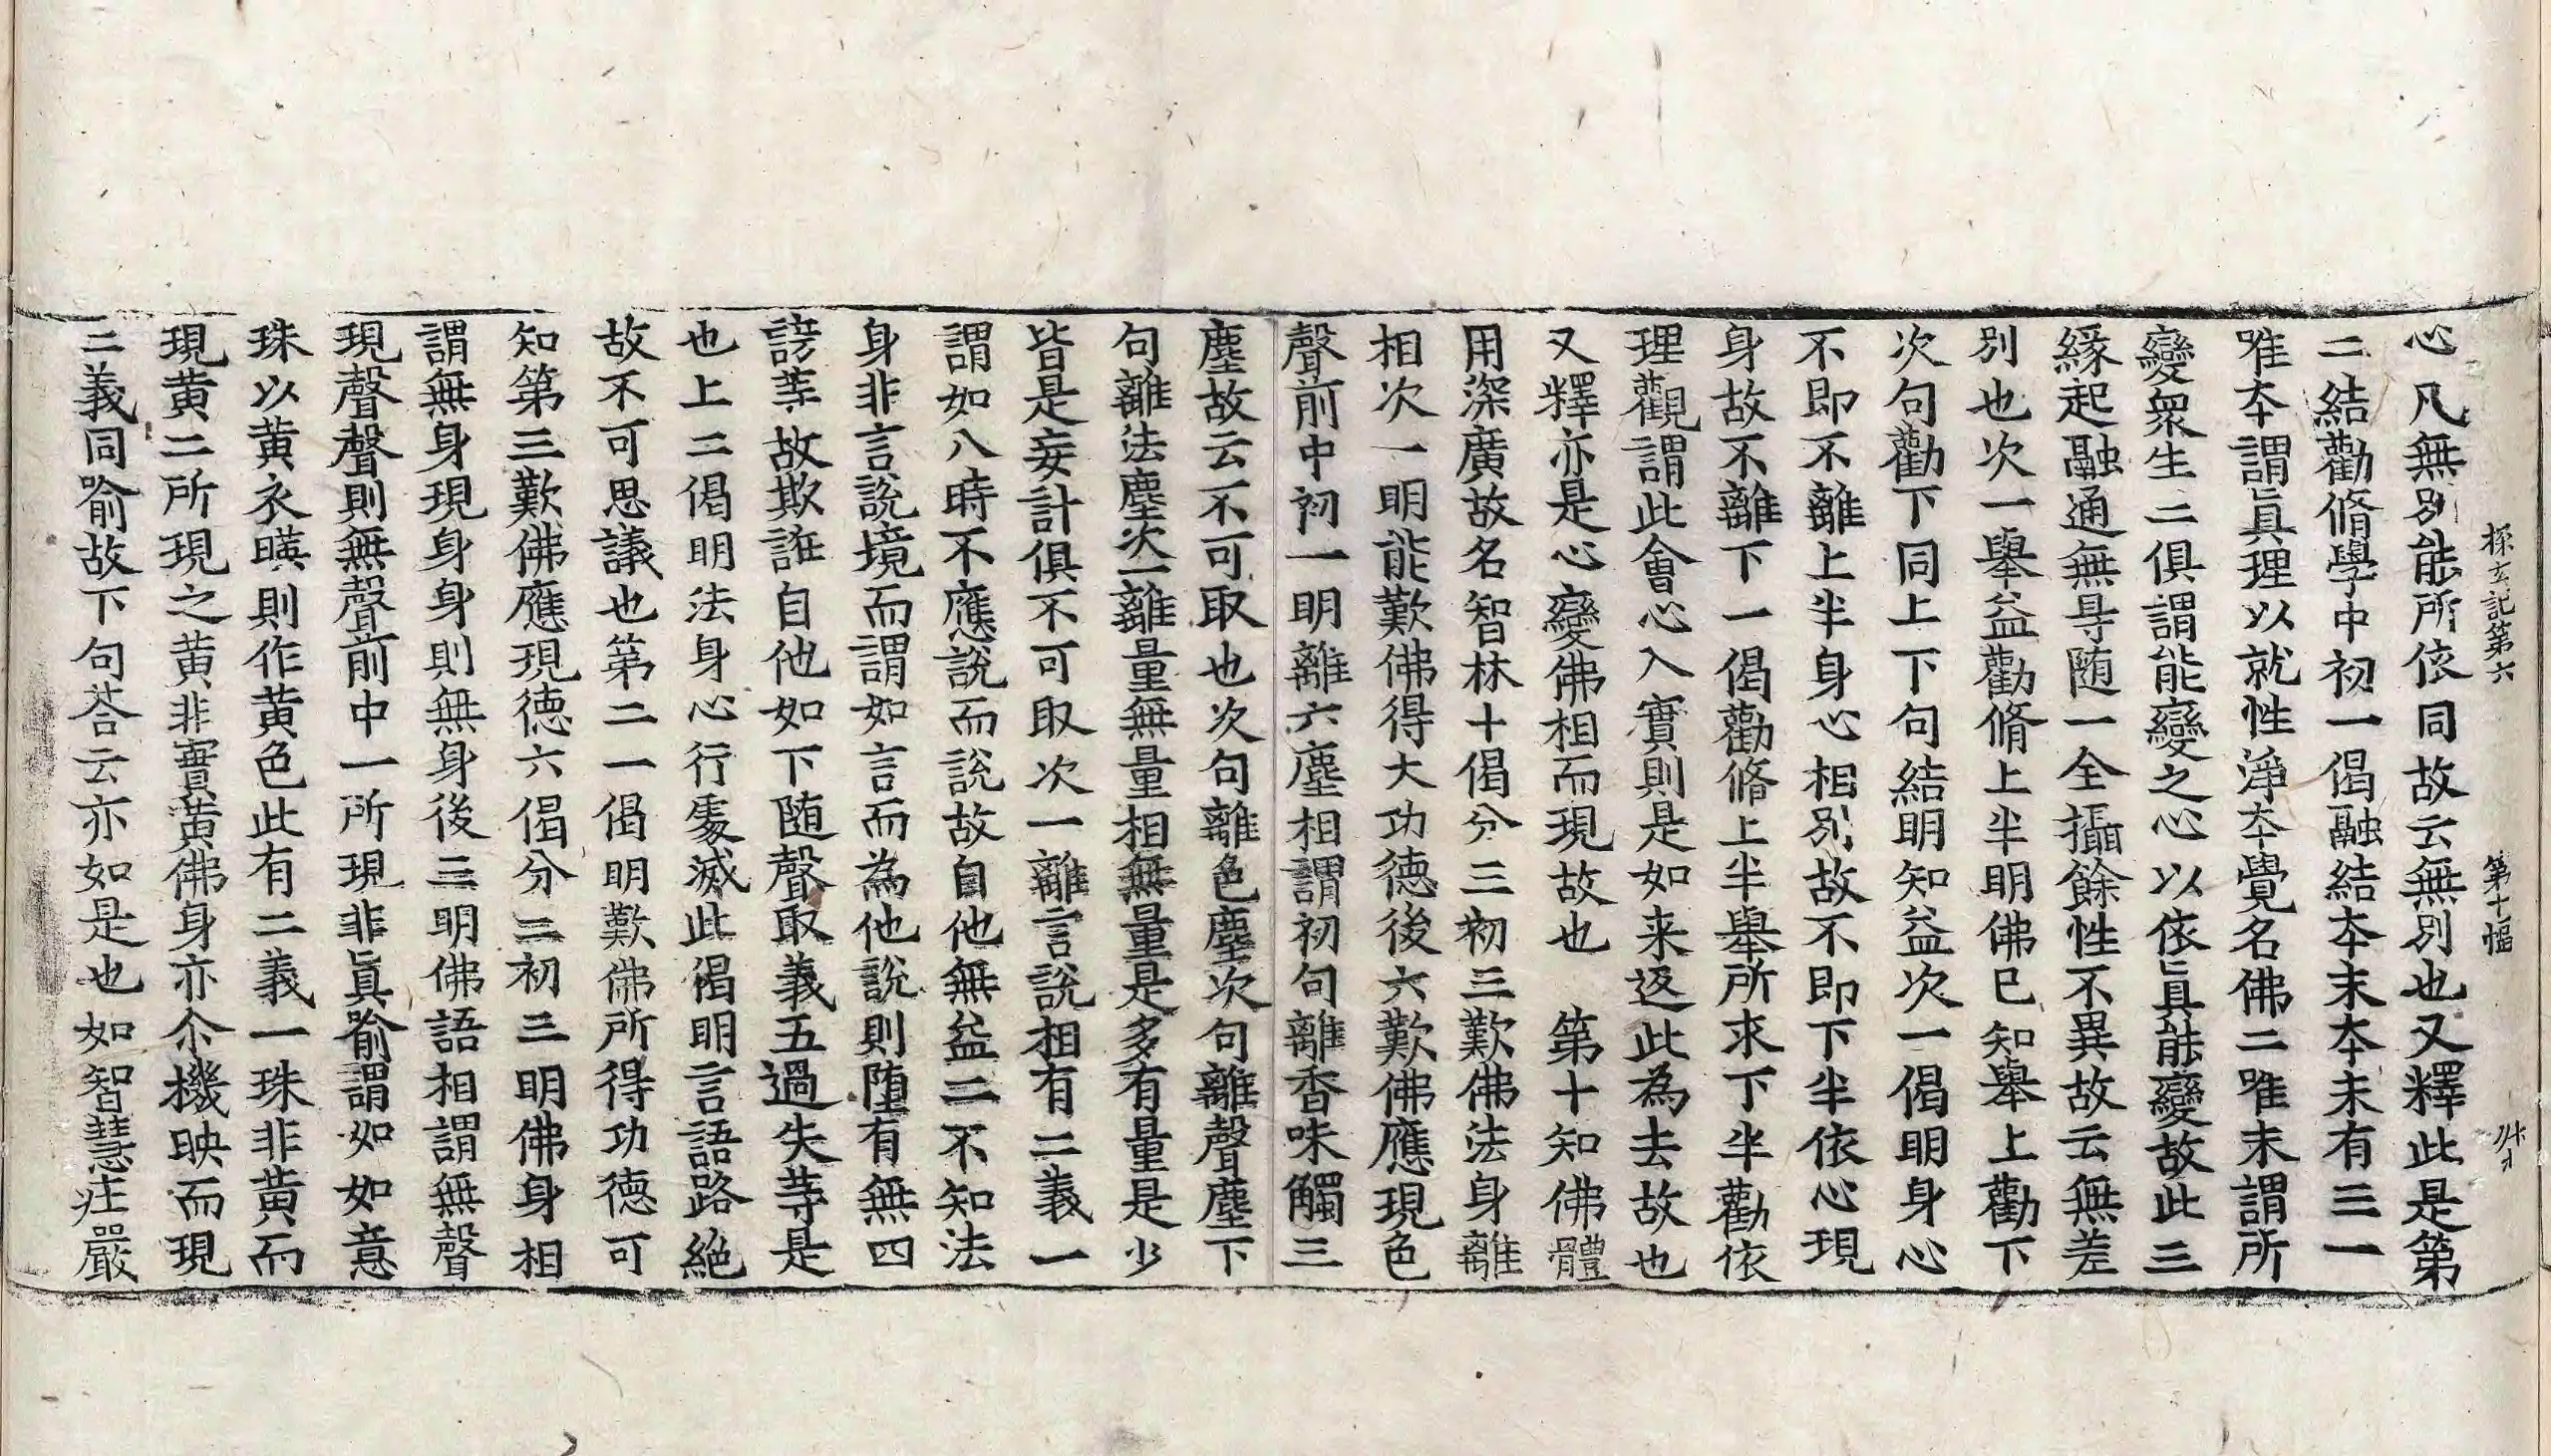 探玄記第六　第十幅
心凡無別能所依同故云無別也又釋此是第
二結勸脩學中初一偈融結本末本末有三一
唯本謂眞理以就性淨本覺名佛二唯末謂所
變衆生二俱謂能變之心以依眞能變故此三
緣起融通無㝵随一全攝餘性不異故云無差
別也次一舉益勸脩上半明佛已知舉上勸下
次句勸下同上下句結明知益次一偈明身心
不即不離上半身心相別故不即下半依心現
身故不離下一偈勸脩上半舉所求下半勸依
理觀謂此會心入實則是如来返此為去故也
又釋亦是心變佛相而現故也　第十知佛體
用深廣故名智林十偈分三初三歎佛法身離
相次一明能歎佛得大功德後六歎佛應現色
聲前中初一明離六塵相謂初句離香味觸三
塵故云不可取也次句離色塵次句離聲塵下
句離法塵次一離量無量相無量是多有量是少
皆是妄計俱不可取次一離言說相有二義一
謂如八時不應說而說故自他無益二不知法
身非言說境而謂如言而為他說則堕有無四
謗等故欺誑自他如下随聲取義五過失等是
也上二偈明法身心行處滅此偈明言語路絶
故不可思議也第二一偈明歎佛所得功德可
知第三歎佛應現德六偈分二初三明佛身相
謂無身現身身則無身後三明佛語相謂無聲
現聲聲則無聲前中一所現非眞喻謂如如意
珠以黄衣暎則作黄色此有二義一珠非黄而
現黄二所現之黄非實黄佛身亦尒機映而現
二義同喻故下句荅云亦如是也如智慧疰嚴